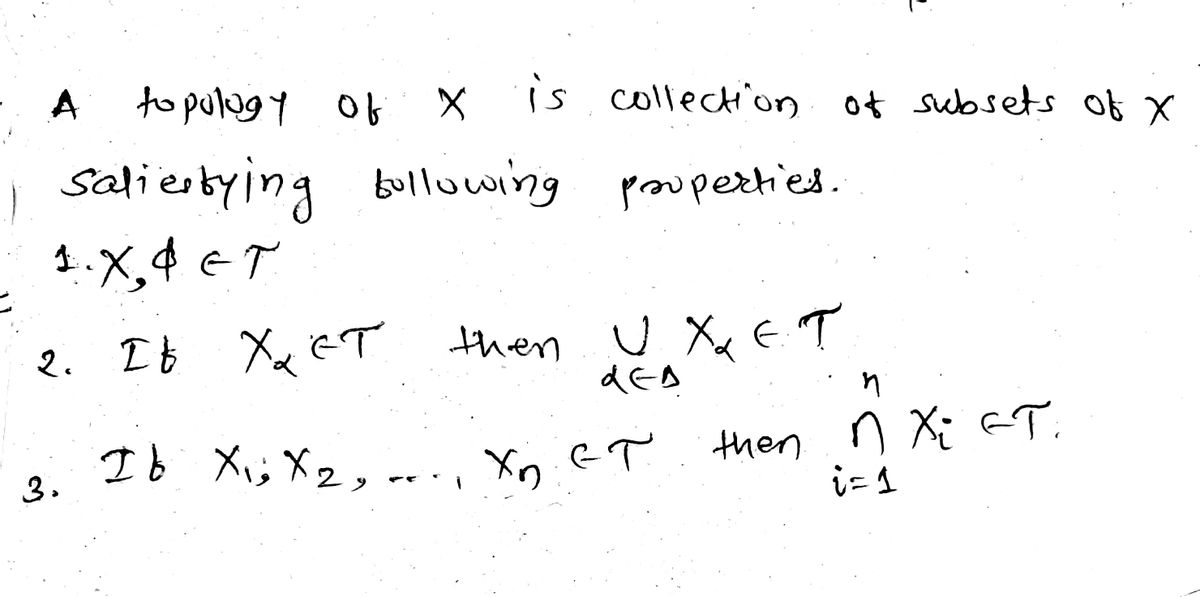 A topology of X is collection of subsets of X
satiesfying following properties.
1. X, ϕ ∈ T
2. If X_α ∈ T then ∪_{α∈Δ} X_α ∈ T
3. If X₁, X₂, ...., Xₙ ∈ T then ∩_{i=1}^{n} X_i ∈ T.